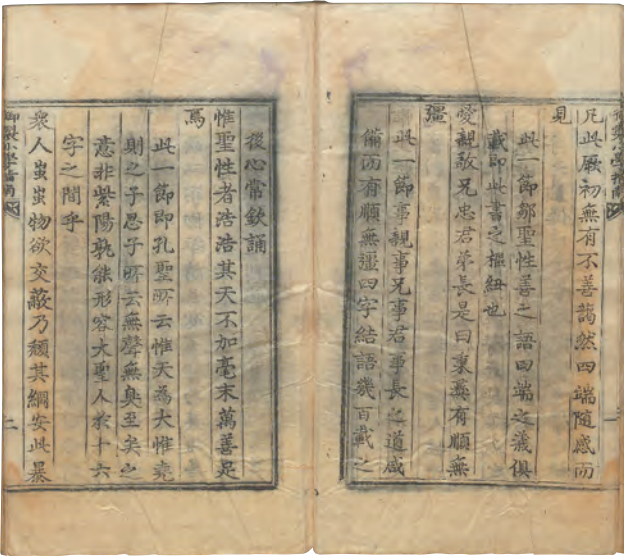 凡此厥初無有不善藹然四端隨感而
見
此一節鄒聖性善之語四端之義俱
載即此書之樞紐也
愛親敬兄忠君弟長是曰秉彝有順無
彊
此一節事親事兄事君事長之道咸
備而有順無彊四字結語幾百載之
後心常欽誦
惟聖性者浩浩其天不加毫末萬善足
焉
此一節即孔聖所云惟天為大惟堯
則之子思子所云無聲無臭至矣之
意非紫陽孰能形容大聖人於十六
字之間乎
衆人蚩蚩物欲交蔽乃頹其綱安此暴
御製小學指南
二